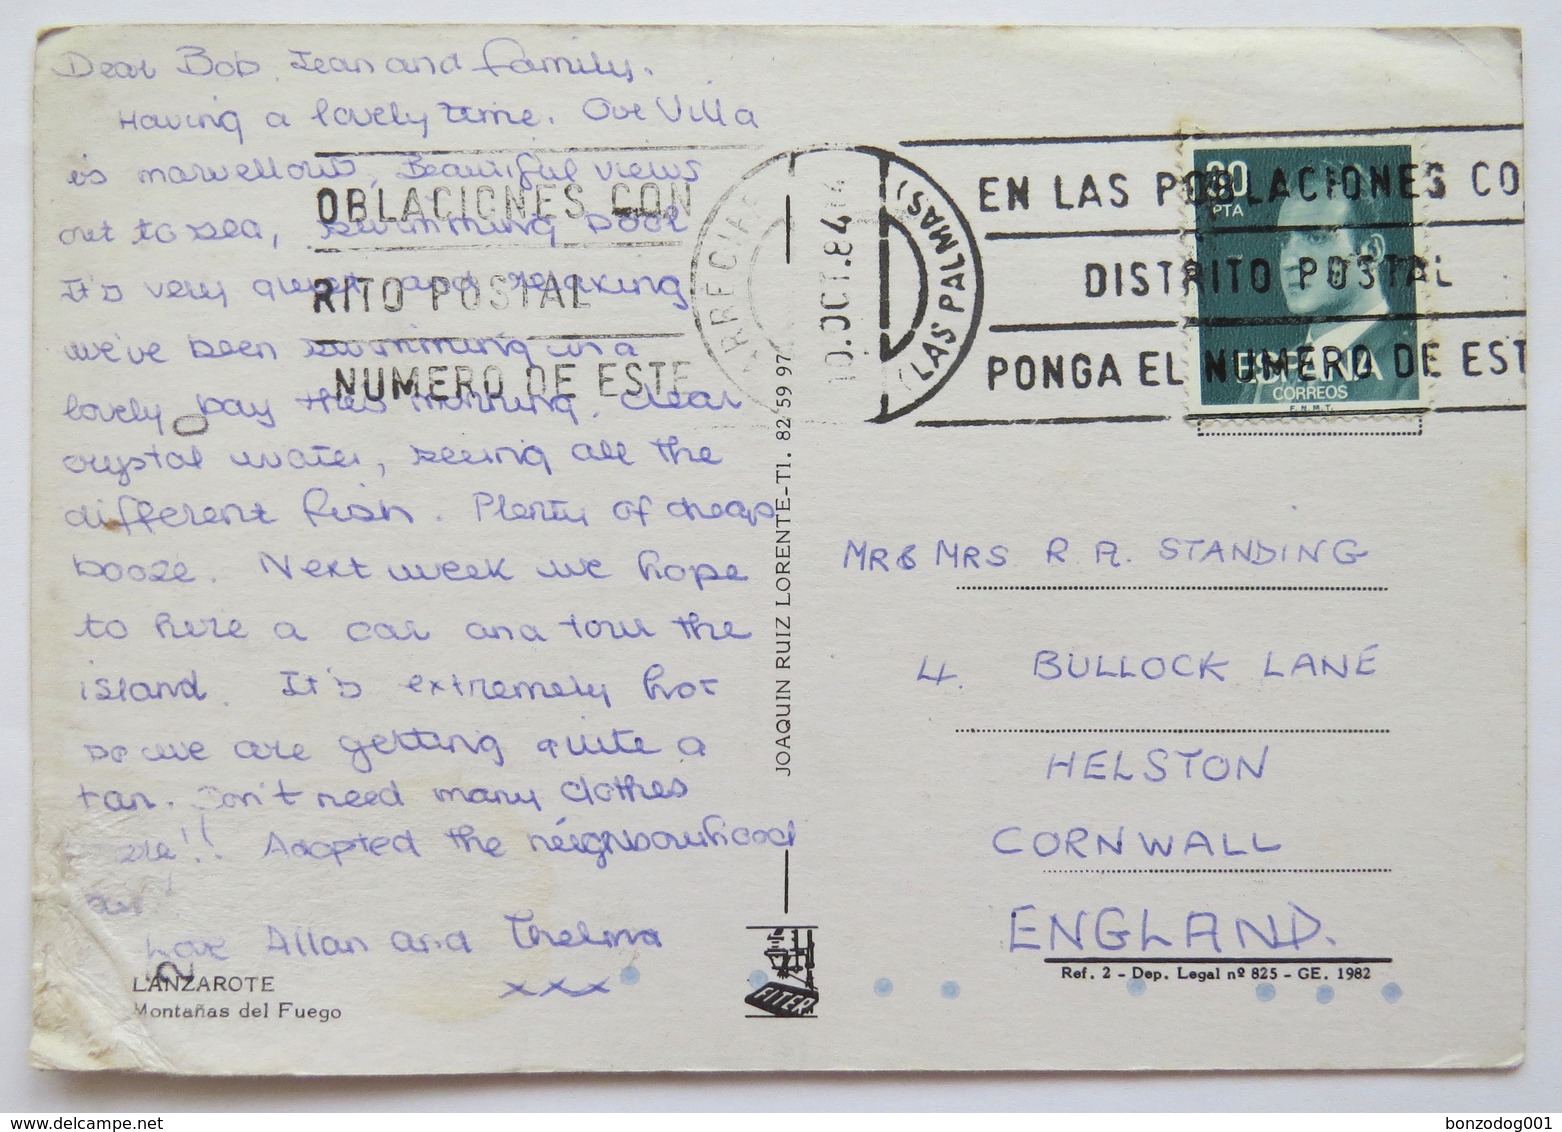 Dear Bob, Jean and family.
Having a lovely time. Our Villa
is marvellous, Beautiful views
out to sea, swimming pool
It's very quiet and relaxing
we've been swimming in a
lovely bay this morning, clear
crystal water, seeing all the
different fish. Plenty of cheap
booze. Next week we hope
to hire a car and tour the
island. It's extremely hot
so we are getting quite a
tan. Don't need many clothes
Adopted the neighbourhood
Love Allan and Thelma
xxx
LANZAROTE
Montañas del Fuego
2
OBLACIONES CON
RITO POSTAL
NUMERO DE ESTE
ARRECIFE
10.OCT.84
(LAS PALMAS)
EN LAS POBLACIONES CO
DISTRITO POSTAL
PONGA EL NUMERO DE EST
20
PTA
ESPAÑA
CORREOS
F.N.M.T.
JOAQUIN RUIZ LORENTE-Tl. 82 59 97
FITER
MR & MRS R. A. STANDING
4. BULLOCK LANE
HELSTON
CORNWALL
ENGLAND.
Ref. 2 - Dep. Legal nº 825 - GE. 1982
bonzodog001